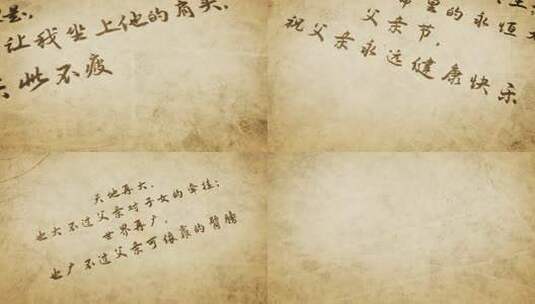 让我坐上他的肩头，
此不疲
里的永恒
父亲节，
祝父亲永远健康快乐
天地再大，
也大不过父亲对子女的牵挂；
世界再广，
也广不过父亲可依靠的臂膀